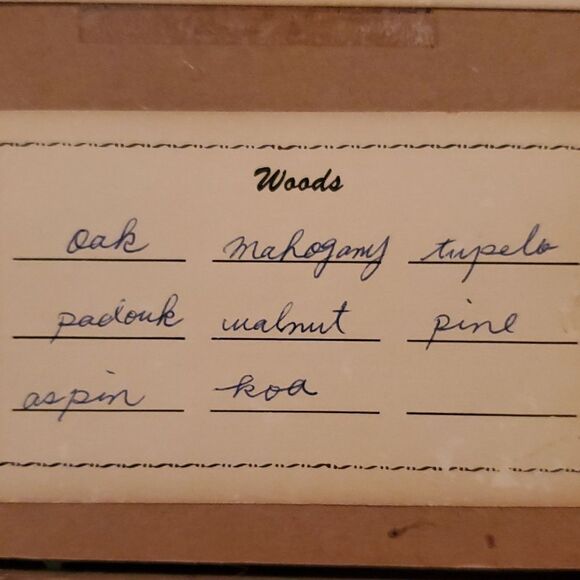 Woods
oak mahogany tupelo
padouk walnut pine
aspin koa